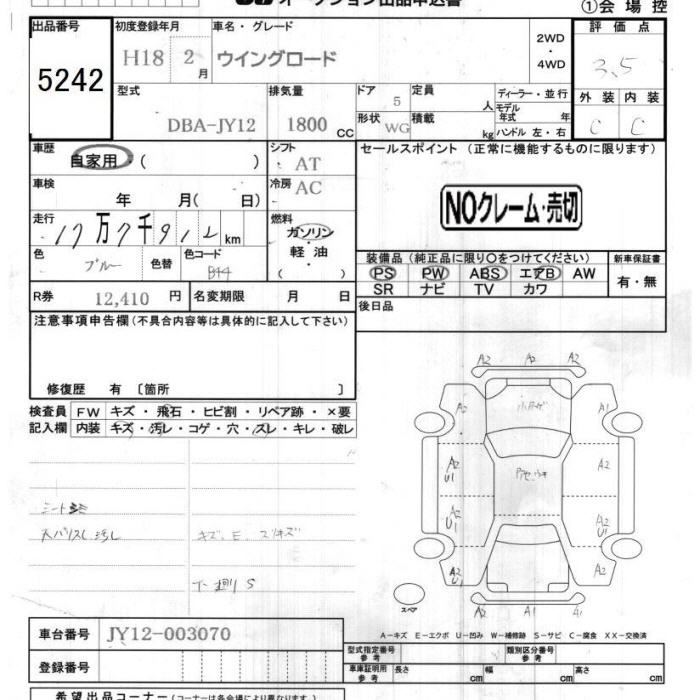 オークション出品申込書
①会場控
出品番号
5242
初度登録年月
H18 2月
車名・グレード
ウイングロード
2WD
・
4WD
評価点
3.5
型式
DBA-JY12
排気量
1800 CC
ドア
5
形状
WG
定員
人
積載
kg
ディーラー・並行
モデル年式 年
ハンドル 左・右
外装 内装
C C
車歴
自家用・( )
シフト
AT
セールスポイント (正常に機能するものに限ります)
NOクレーム・売切
車検
年 月( 日)
冷房
AC
走行
17万7千912km
燃料
ガソリン・
軽油
( )
色
ブルー
色替
色コード
B44
装備品 (純正品に限り○をつけてください)
PS PW ABS エアB AW
SR ナビ TV カワ
新車保証書
有・無
R券 12,410 円
名変期限 月 日
後日品
注意事項申告欄 (不具合内容等は具体的に記入して下さい)
修復歴 有 〔箇所 〕
検査員
記入欄
FW キズ・飛石・ヒビ割・リペア跡・×要
内装 キズ・汚レ・コゲ・穴・スレ・キレ・破レ
キズ、E、スリキズ
A2 A2 A2
A2 A1
A2 U1 A2
A2 U1 A2 U1
A2 U1 A2
スペア
A2 A1 A1
A-キズ E-エクボ U-凹み W-補修跡 S-サビ C-腐食 XX-交換済
車台番号 JY12-003070
登録番号
型式指定番号
参考
類別区分番号
参考
車庫証明用
参考
長さ cm 幅 cm 高さ cm
希望出品コーナー (コーナーは各会場により異なります。)